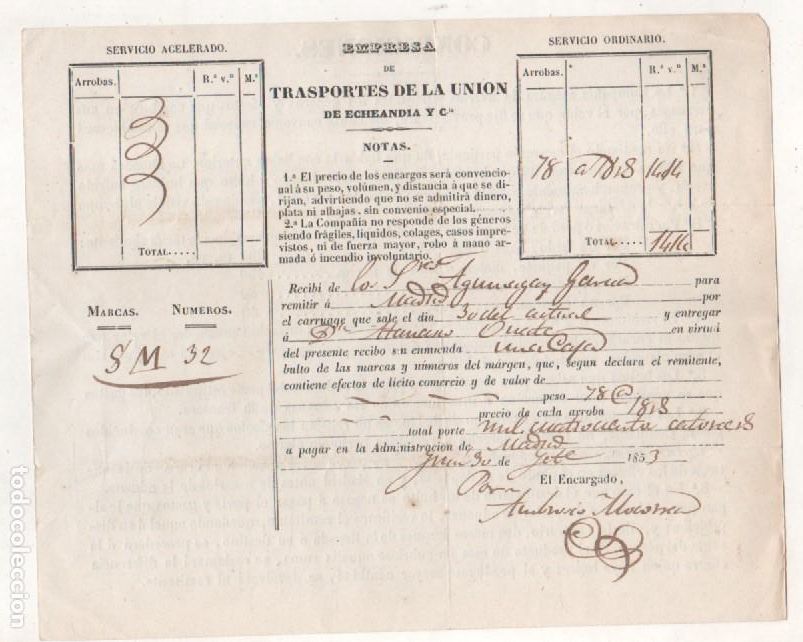 SERVICIO ACELERADO.
Arrobas. R.ˢ v.ⁿ M.ˢ
TOTAL.....
EMPRESA
DE
TRASPORTES DE LA UNION
DE ECHEANDIA Y C.ª
NOTAS.
1.ª El precio de los encargos será convencio-
nal á su peso, volúmen, y distancia á que se di-
rijan, advirtiendo que no se admitirá dinero,
plata ni alhajas, sin convenio especial.
2.ª La Compañía no responde de los géneros
siendo frágiles, líquidos, colages, casos impre-
vistos, ni de fuerza mayor, robo á mano ar-
mada ó incendio involuntario.
SERVICIO ORDINARIO.
Arrobas. R.ˢ v.ⁿ M.ˢ
78 a 18 1414
TOTAL..... 1414
MARCAS. NUMEROS.
S M 32
Recibí de los S.res García para
remitir á Madrid por
el carruage que sale el dia 30 del actual y entregar
á D.n Oñate en virtud
del presente recibo sin enmienda una Caja
bulto de las marcas y números del márgen, que, segun declara el remitente,
contiene efectos de lícito comercio y de valor de
peso 78 @
precio de cada arroba 18
total porte mil cuatrocientos catorce
a pagar en la Administracion de Madrid
30 de 1853
El Encargado,
Por
Ambrosio
todocoleccion